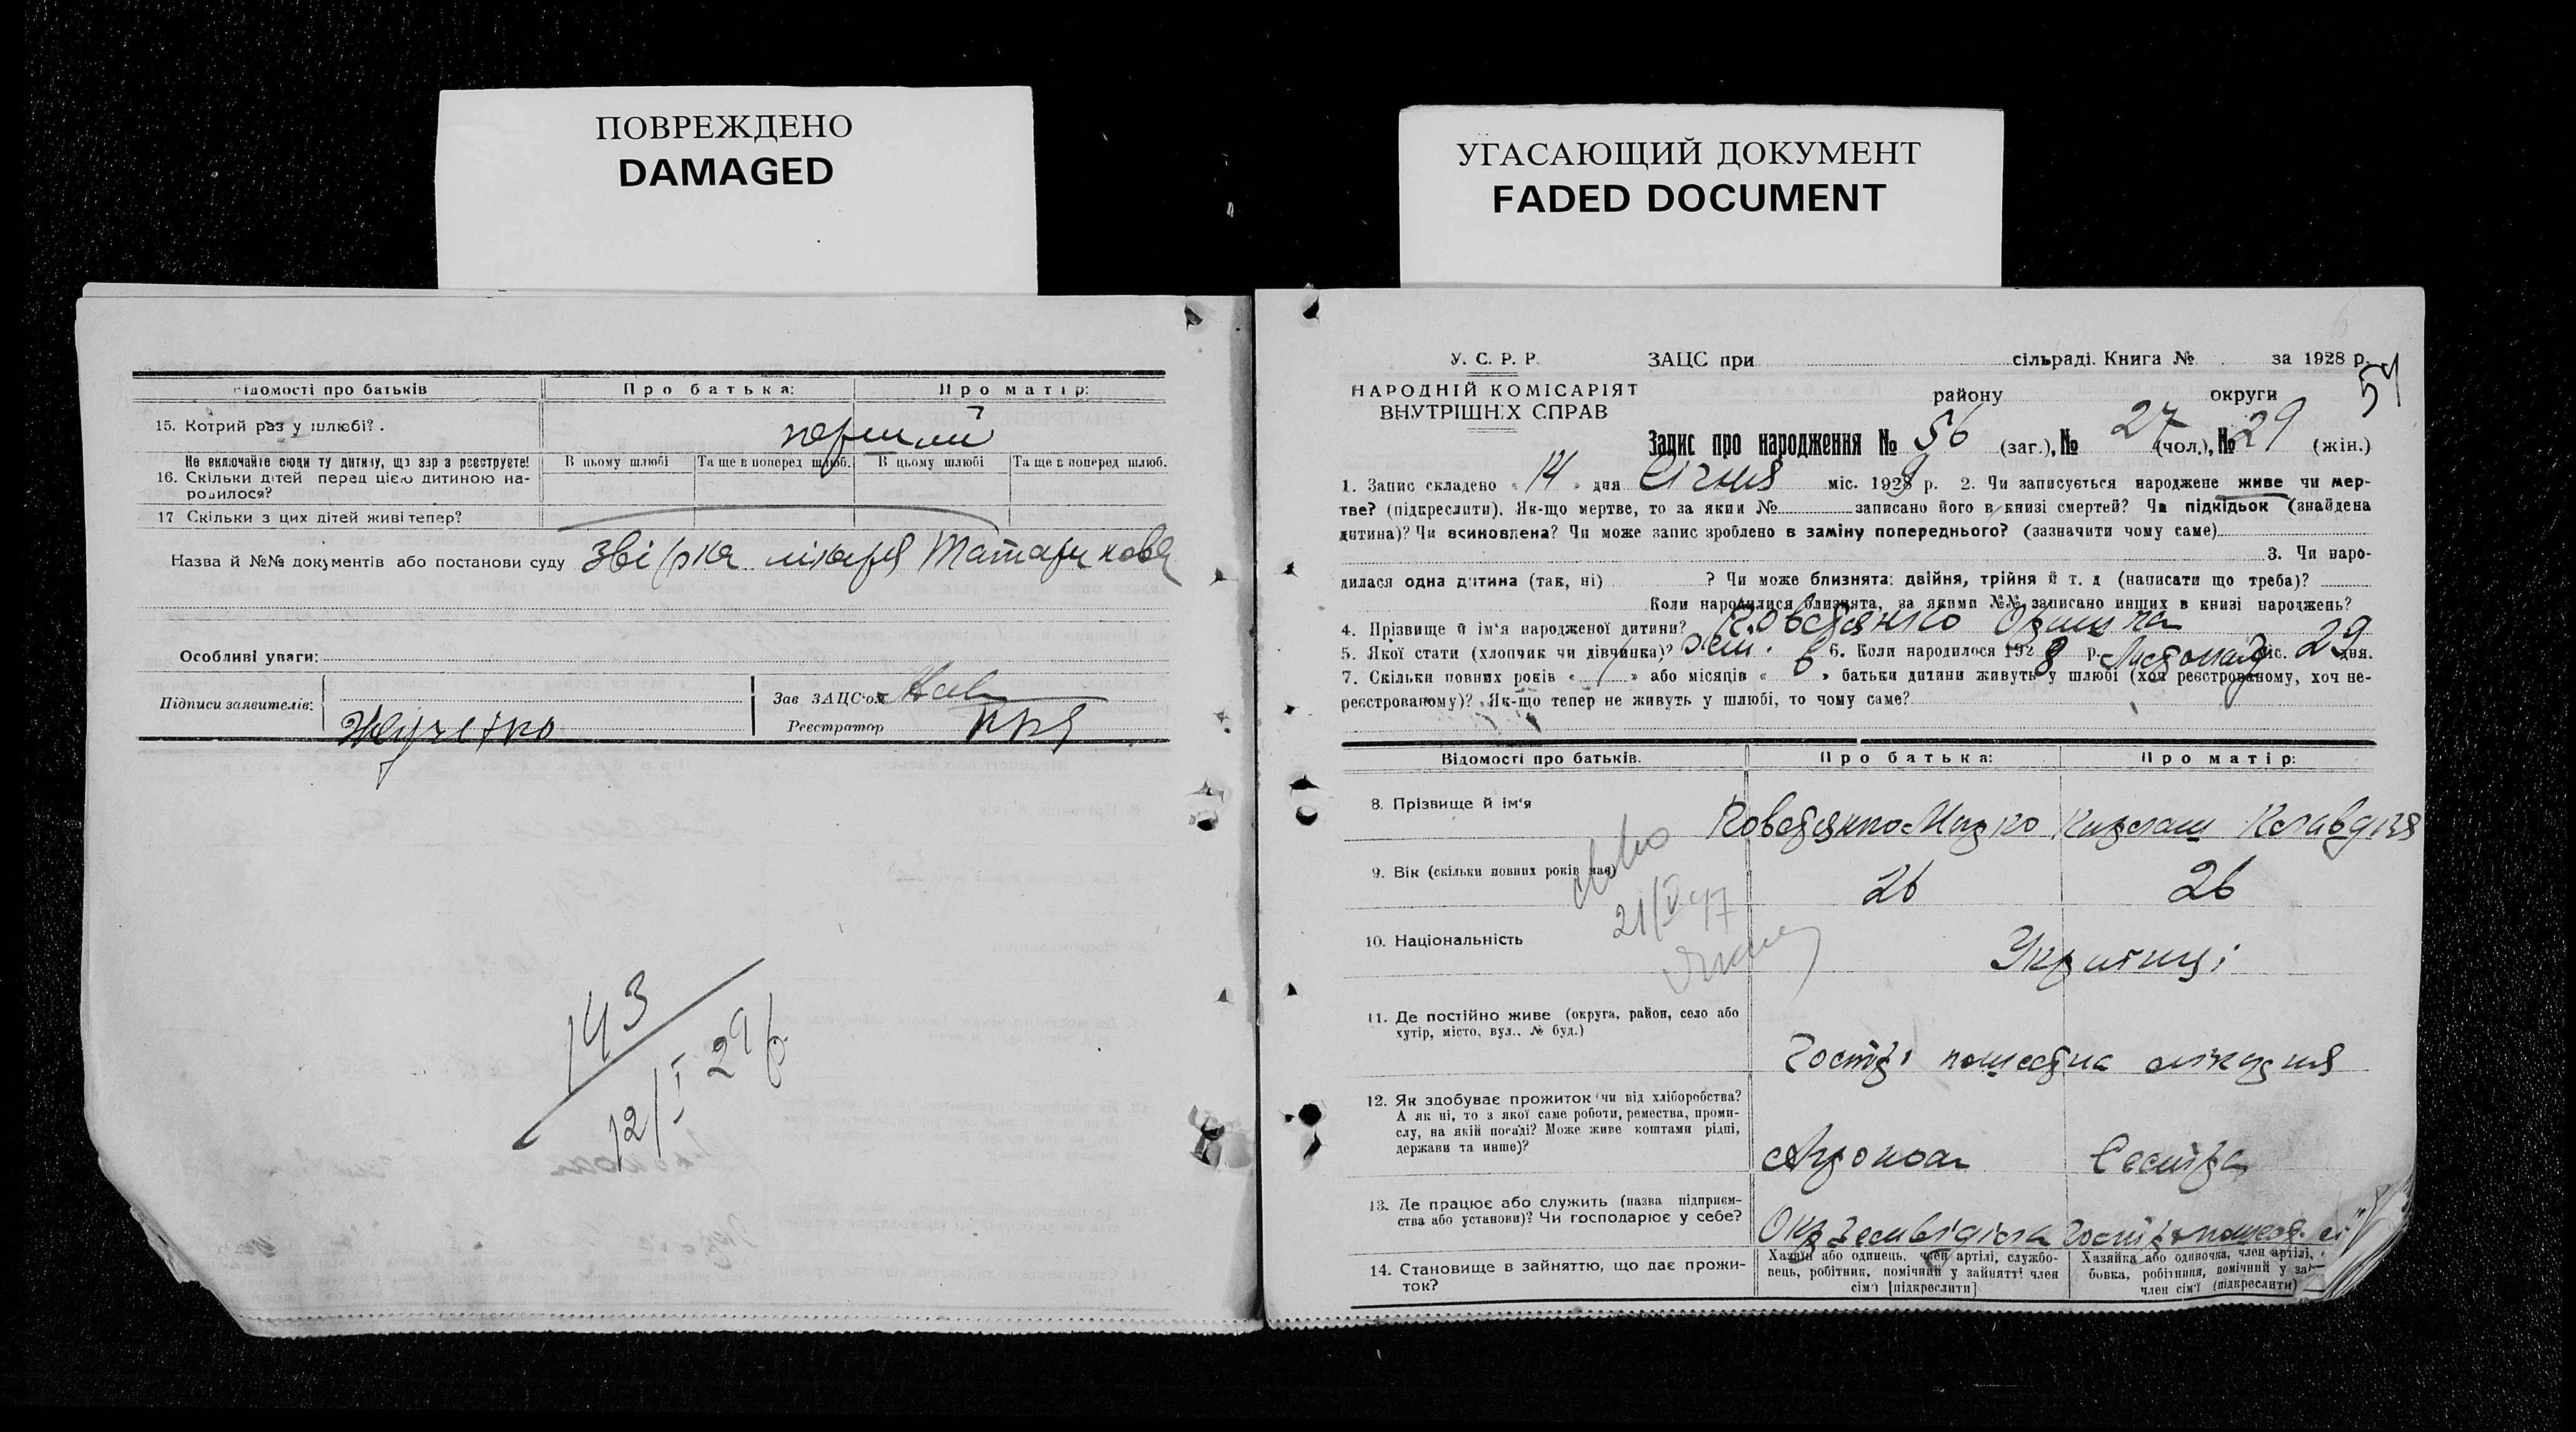 ПОВРЕЖДЕНО
DAMAGED
УГАСАЮЩИЙ ДОКУМЕНТ
FADED DOCUMENT
відомості про батьків
Про батька:
Про матір:
15. Котрий раз у шлюбі?
перший
Не включайте сюди ту дитину, що зараз реєструєте!
В цьому шлюбі
Та ще в поперед шлюб.
В цьому шлюбі
Та ще в поперед шлюб.
16. Скільки дітей перед цією дитиною на-
родилося?
17 Скільки з цих дітей живі тепер?
Назва й №№ документів або постанови суду
лікаря
Особливі уваги:
Підписи заявителів:
Зав ЗАЦС'ом
Реєстратор
143
12/I 29 р.
У. С. Р. Р.
ЗАЦС при сільраді. Книга № за 1928 р.
НАРОДНІЙ КОМІСАРІЯТ
ВНУТРІШНІХ СПРАВ
району округи
54
Запис про народження № 56 (заг.), № 27 (чол.), № 29 (жін.)
1. Запис складено « 14 » дня Січня міс. 1929 р. 2. Чи записується народжене живе чи мер-
тве? (підкреслити). Як-що мертве, то за яким № записано його в книзі смертей? Чи підкідьок (знайдена
дитина)? Чи всиновлена? Чи може запис зроблено в заміну попереднього? (зазначити чому саме)
3. Чи наро-
дилася одна дитина (так, ні) ? Чи може близнята: двійня, трійня й т. д (написати що треба)?
Коли народилися близнята, за якими №№ записано инших в книзі народжень?
4. Прізвище й ім'я народженої дитини?
5. Якої стати (хлопчик чи дівчинка)? жін. 6. Коли народилося 1928 р. Листопад міс. 29 дня.
7. Скільки повних років « / » або місяців « 6 » батьки дитини живуть у шлюбі (хоч реєстрованому, хоч не-
реєстрованому)? Як-що тепер не живуть у шлюбі, то чому саме?
Відомості про батьків.
Про батька:
Про матір:
8. Прізвище й ім'я
Клавдія
9. Вік (скільки повних років має)
26
26
21/V 47
10. Національність
Українці
11. Де постійно живе (округа, район, село або
хутір, місто, вул., № буд.)
12. Як здобуває прожиток чи від хліборобства?
А як ні, то з якої саме роботи, ремества, проми-
слу, на якій посаді? Може живе коштами рідні,
держави та инше)?
Агроном
Сестра
13. Де працює або служить (назва підприєм-
ства або установи)? Чи господарює у себе?
14. Становище в зайняттю, що дає прожи-
ток?
Хазяїн або одинець, член артілі, службо-
вець, робітник, помічний у зайнятті член
сім'ї [підкреслити]
Хазяйка або одиночка, член артілі,
бовка, робітниця, помічний у за
член сім'ї (підкреслити)